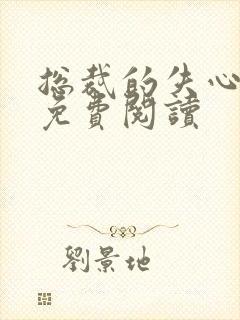 总裁的失心
免費閱讀
劉景地